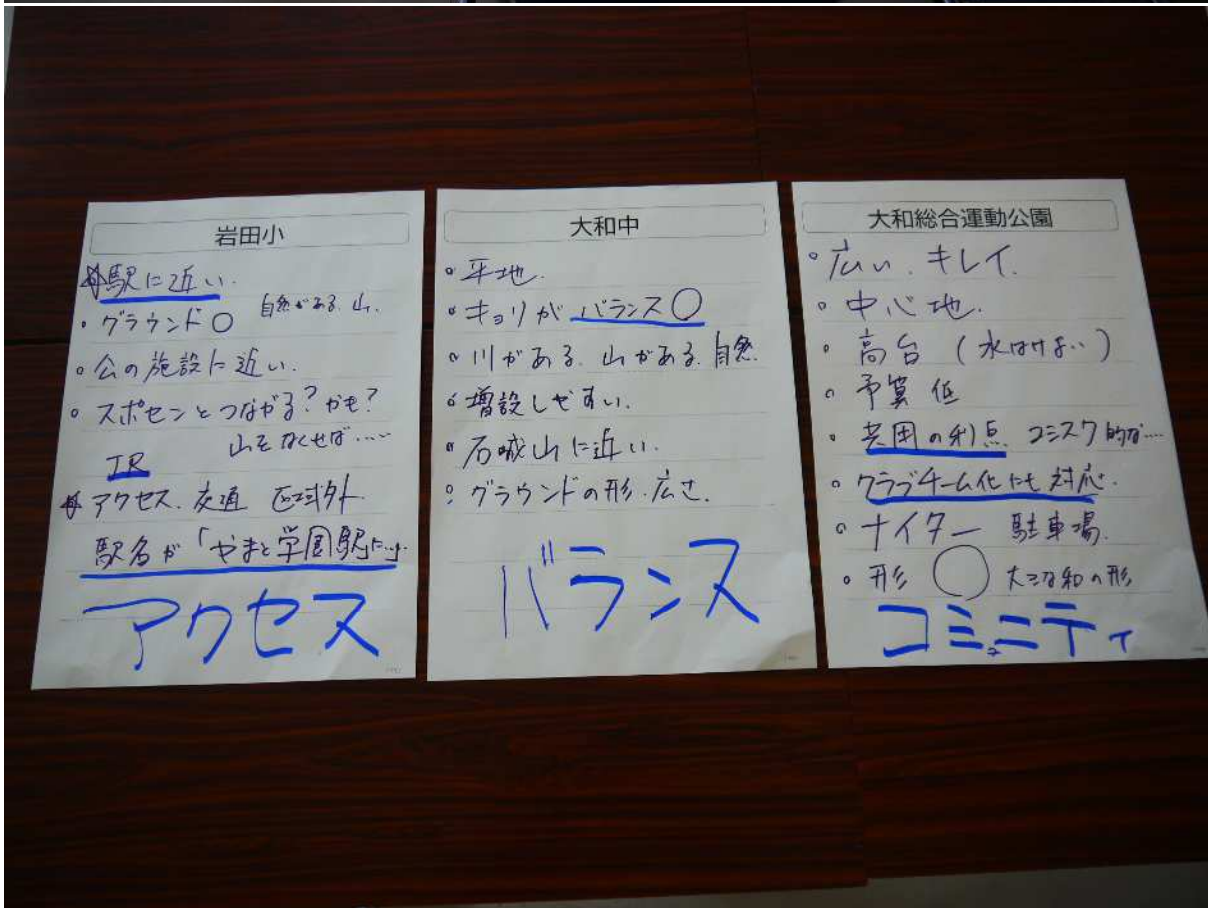 岩田小
駅に近い.
・グラウンド○ 自然がある.山.
・公の施設に近い.
・スポセンとつながる?かも?
山をなくせば….
JR
アクセス.交通 区域外
駅名が「やまと学園駅に…」
アクセス
大和中
・平地.
・キョリが バランス○
・川がある.山がある.自然.
・増設しやすい.
・石城山に近い.
・グラウンドの形.広さ.
バランス
大和総合運動公園
・広い.キレイ.
・中心地.
・高台(水はけよい)
・予算 低
・共田の利点 コミスク的な….
・クラブチーム化にも対応.
・ナイター 駐車場.
・形 ○ 大きな和の形
コミュニティ